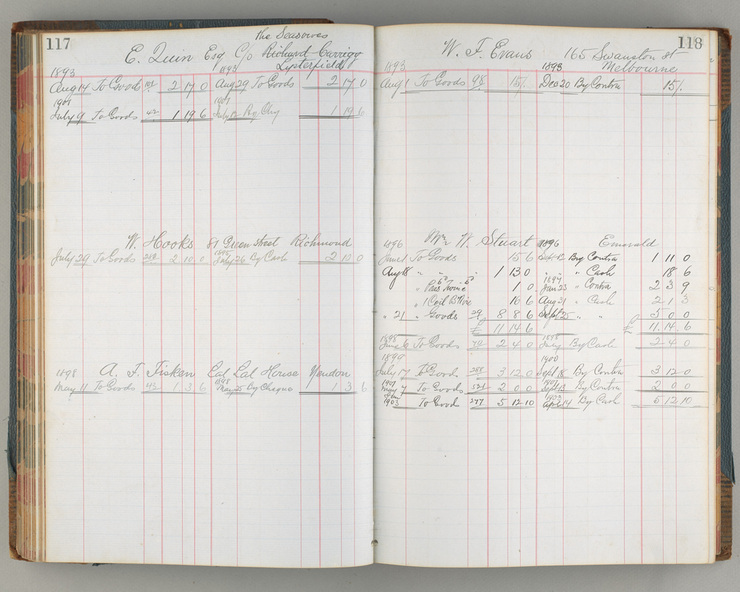 117
The Seasowes
E. Quin Esq C/o Richard Carrigg
Lysterfield
1893 1893
Aug 14 To Goods 2 17 0 Aug 29 To Goods 2 17 0
1901 1901
July 9 To Goods 42 1 19 6 July By Chq 1 19 6
W. Hooks 81 Green Street Richmond
July 29 To Goods 2 10 0 July 26 By Cash 2 10 0
1898 A. F. Fisken Lal Lal House Yendon
1898
May 11 To Goods 42 1 3 6 By Cheque 1 3 6
118
W. F. Evans 165 Swanston St
Melbourne
1893 1893
Aug 1 To Goods 98 15/. Dec 20 By Contra 15/.
Mr W. Stuart Emerald
1896 1896
June 1 To Goods 15 6 Sept 2 By Contra 1 11 0
Aug 18 " " " 1 13 0 " Cash 18 6
1897
" Twine 1 0 Jan 23 " Contra 2 3 9
" 1 Coil B Wire 16 6 Aug 31 " Cash 2 1 3
" 21 " Goods 29 8 8 6 Sept 25 " " 5 0 0
£ 11 14 6 £ 11 14 6
1898 1898
June 6 To Goods 2 4 0 July By Cash 2 4 0
1899 1900
July 17 To Goods 3 12 0 Sept 18 By Contra 3 12 0
1901
May 7 To Goods 124 2 0 0 By Contra 2 0 0
1903 To Good 277 5 12 10 14 By Cash 5 12 10